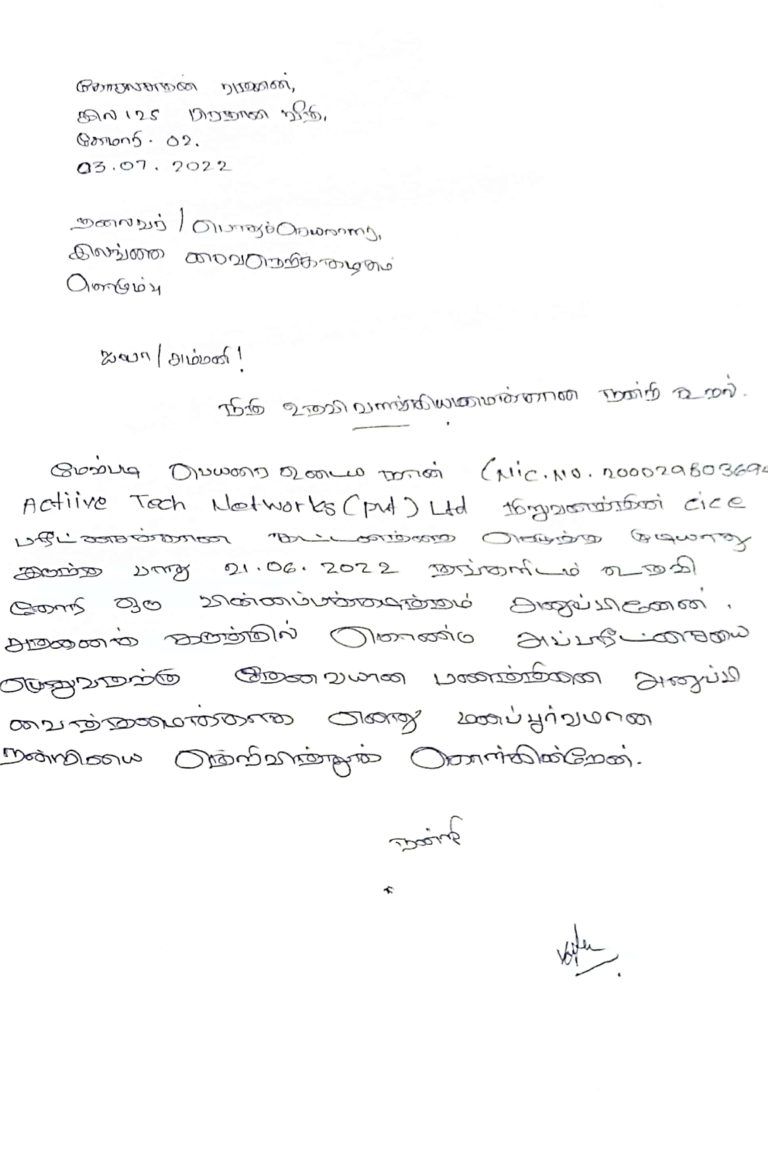 கோபாலசுதன் றமணன்,
இல 125 பிரதான வீதி,
கோமாரி - 02.
03.07.2022
தலைவர் / பொதுச்செயலாளர்,
இலங்கை சைவநெறிக்கழகம்
கொழும்பு
ஐயா / அம்மணி!
நிதி உதவி வழங்கியமைக்கான நன்றி கூறல்.
மேற்படி பெயரை உடைய நான் (NIC.NO. 200029803694
Actiive Tech Networks (pvt) Ltd நிறுவனத்தின் cice
பரீட்சைக்கான கட்டணத்தை செலுத்த முடியாது
இருந்த போது 21.06.2022 தங்களிடம் உதவி
கோரி ஒரு விண்ணப்பக்கடிதத்தை அனுப்பினேன்.
அதனைக் கருத்தில் கொண்டு அப்பரீட்சையை
எழுதுவதற்கு தேவையான பணத்தினை அனுப்பி
வைத்தமைக்காக எனது மனப்பூர்வமான
நன்றியை தெரிவித்துக் கொள்கின்றேன்.
நன்றி